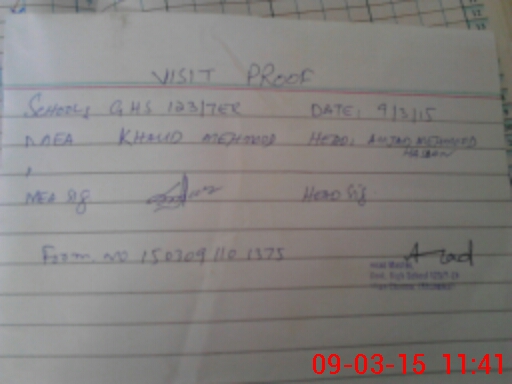 VISIT PROOF
School; GHS 123/7ER DATE; 9/3/15
MEA KHALID MEHMOOD HEAD; AMJAD MEHMOOD
HASSAN
MEA Sig Head Sig
Form No 150309110 1375
09-03-15 11:41